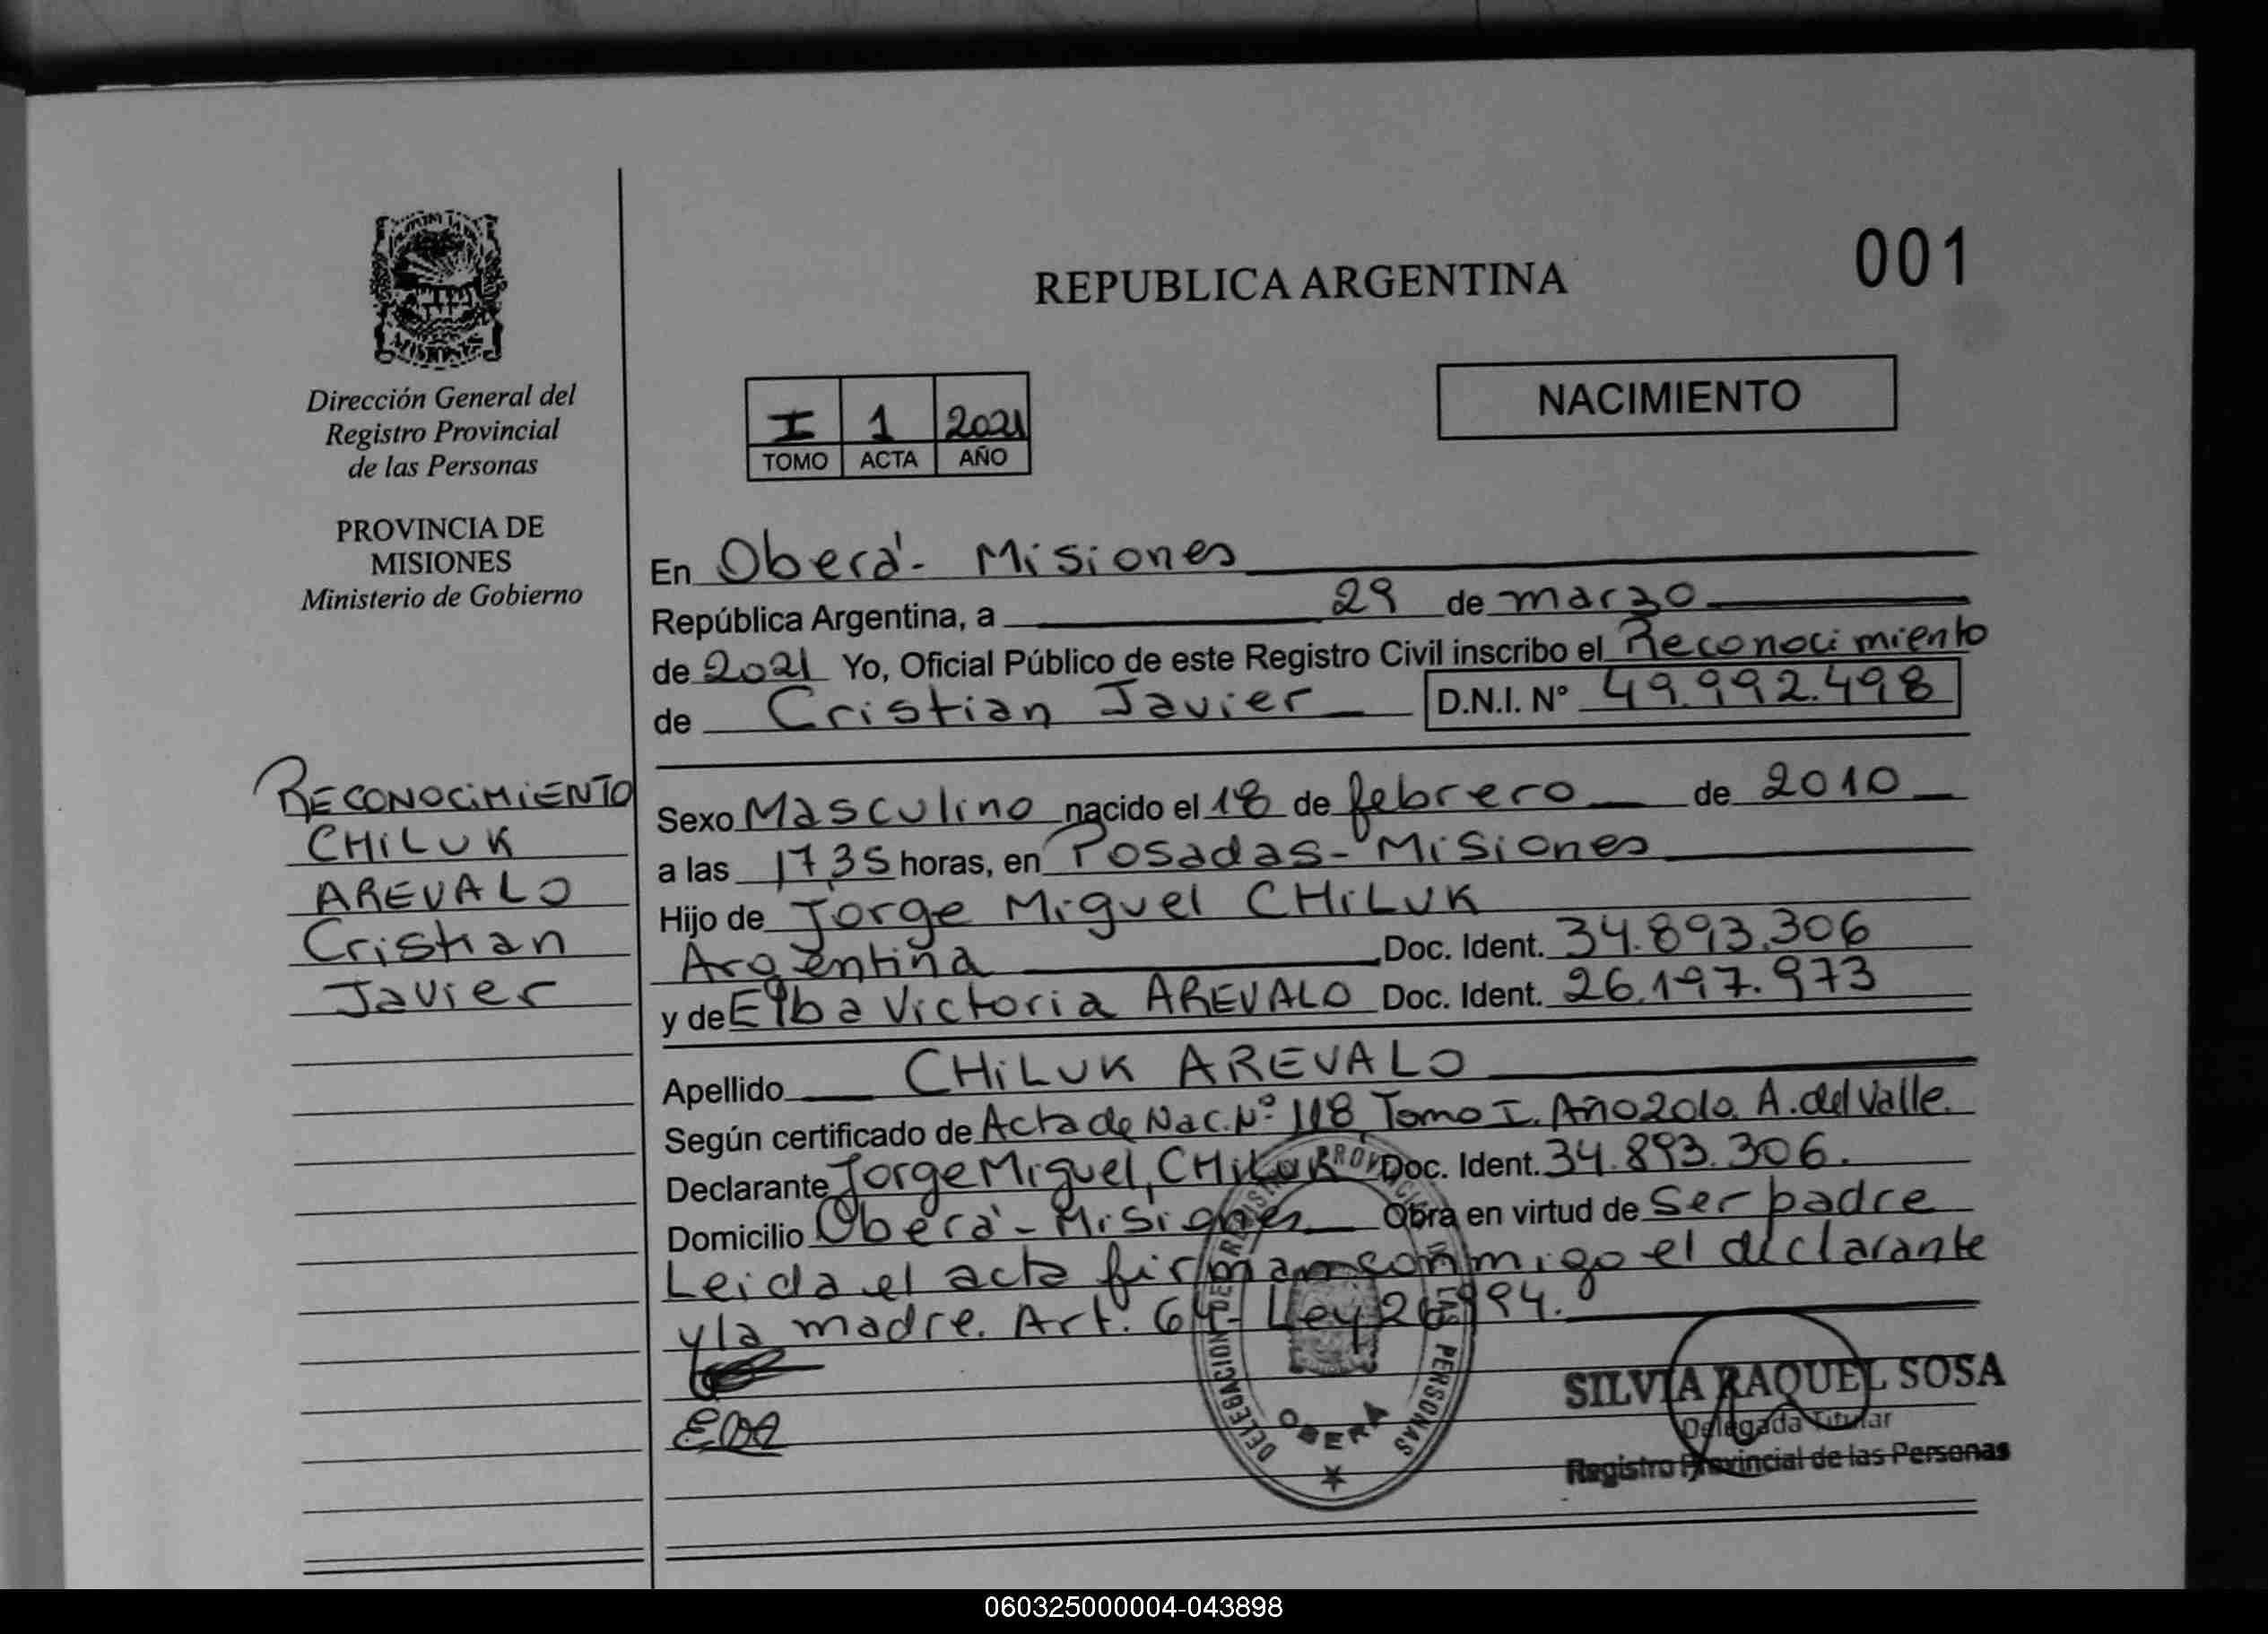 REPUBLICA ARGENTINA
001
MISIONES
Dirección General del
Registro Provincial
de las Personas
PROVINCIA DE
MISIONES
Ministerio de Gobierno
NACIMIENTO
I 1 2021
TOMO ACTA AÑO
En Oberá - Misiones
República Argentina, a 29 de marzo
de 2021 Yo, Oficial Público de este Registro Civil inscribo el Reconocimiento
de Cristian Javier D.N.I. Nº 49.992.498
RECONOCIMIENTO
CHILUK
AREVALO
Cristian
Javier
Sexo Masculino nacido el 18 de febrero de 2010
a las 17,35 horas, en Posadas - Misiones
Hijo de Jorge Miguel CHILUK
Argentina Doc. Ident. 34.893.306
y de Elba Victoria AREVALO Doc. Ident. 26.197.973
Apellido CHILUK AREVALO
Según certificado de Acta de Nac. Nº 118 Tomo I. Año 2010. A. del Valle.
Declarante Jorge Miguel, CHILUK Doc. Ident. 34.893.306.
Domicilio Oberá - Misiones Obra en virtud de ser padre
Leida el acta firman conmigo el declarante
y la madre. Art. 64 - Ley 26994.
DELEGACION DE REGISTRO PROVINCIAL PERSONAS
OBERA
SILVIA RAQUEL SOSA
Delegada Titular
Registro Provincial de las Personas
060325000004-043898